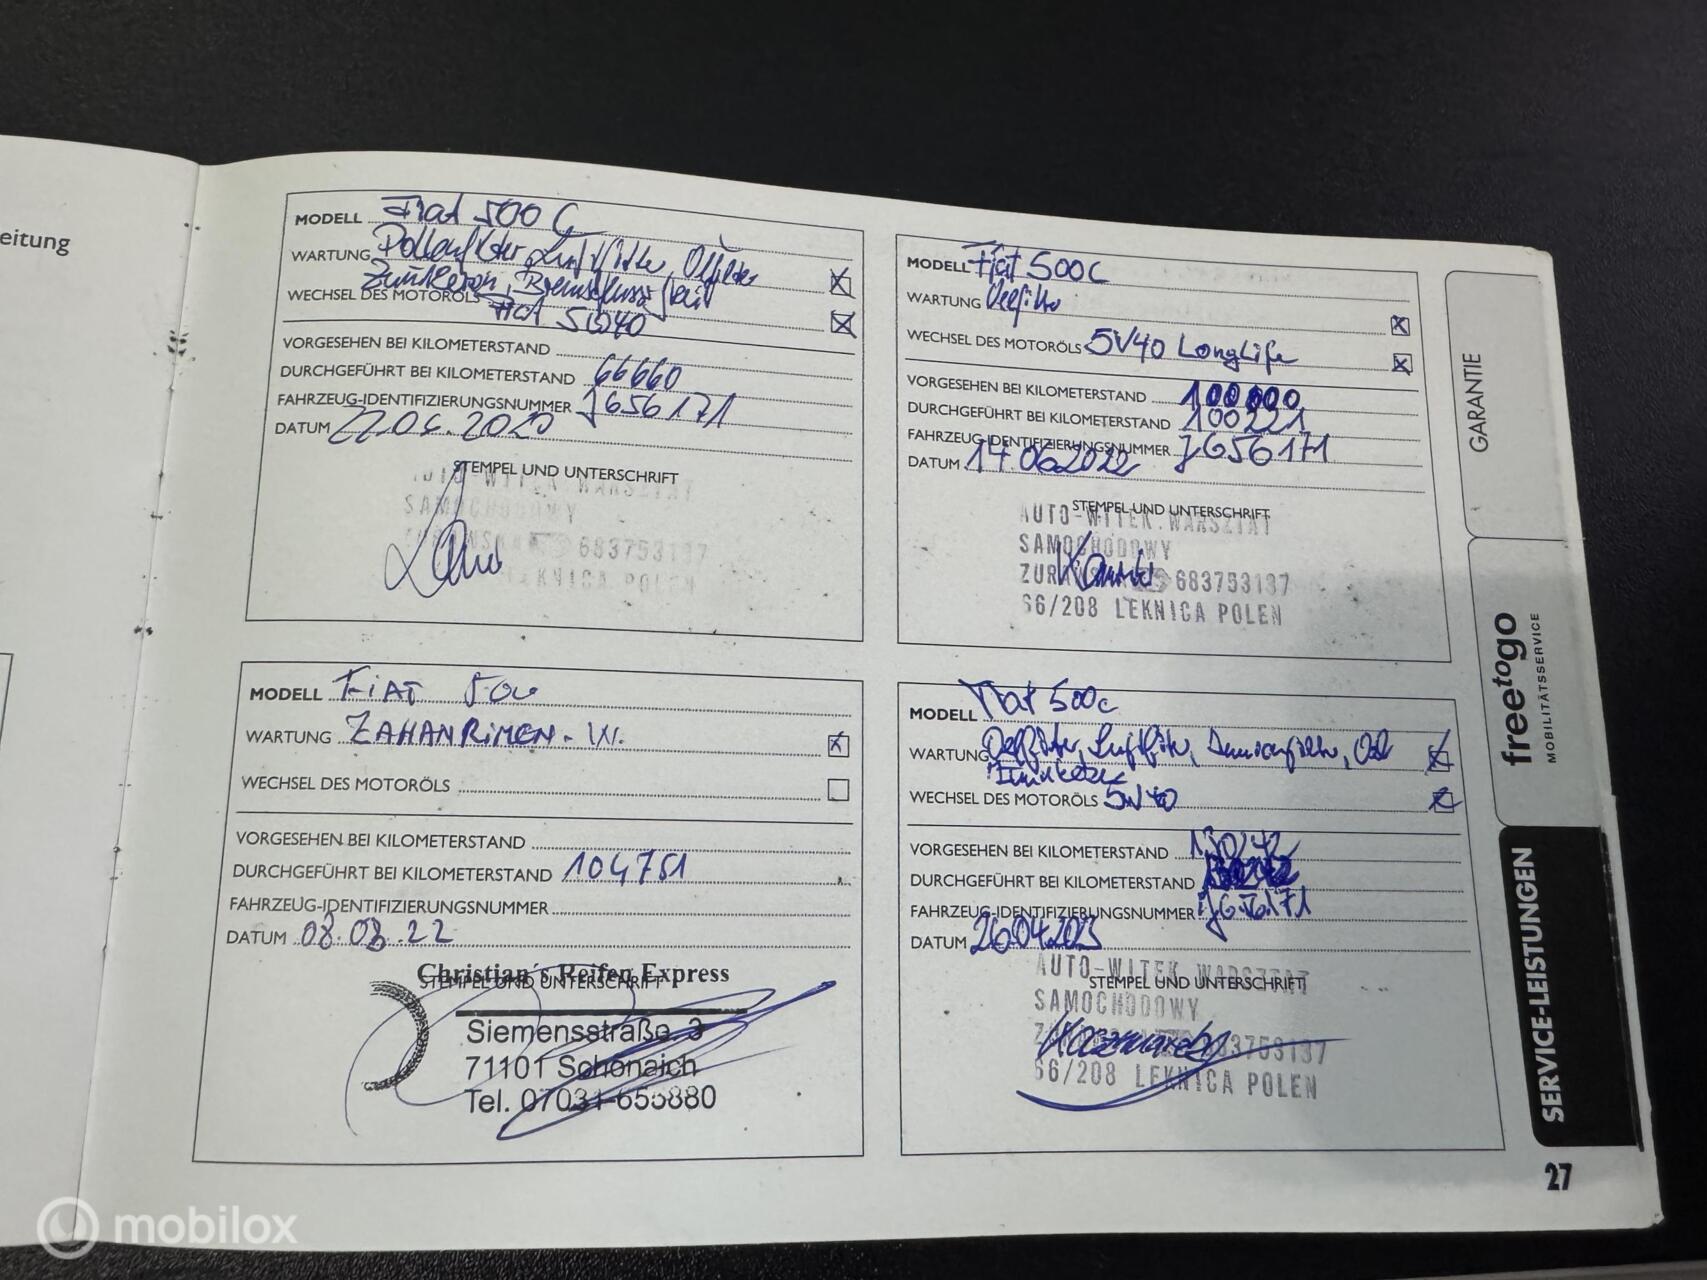 eitung
MODELL Fiat 500 C
WARTUNG Pollenfilter, Luftfilter, Ölfilter
Zündkerzen, Bremsflüssigkeit
WECHSEL DES MOTORÖLS Fiat 5W40
VORGESEHEN BEI KILOMETERSTAND
DURCHGEFÜHRT BEI KILOMETERSTAND 66660
FAHRZEUG-IDENTIFIZIERUNGSNUMMER J656171
DATUM
STEMPEL UND UNTERSCHRIFT
AUTO-WITEK WARSZTAT
SAMOCHODOWY
683753137
LEKNICA POLEN
MODELL Fiat 500C
WARTUNG
WECHSEL DES MOTORÖLS 5W40 LongLife
VORGESEHEN BEI KILOMETERSTAND 100000
DURCHGEFÜHRT BEI KILOMETERSTAND 100221
FAHRZEUG-IDENTIFIZIERUNGSNUMMER J656171
DATUM 14.06.2022
STEMPEL UND UNTERSCHRIFT
AUTO-WITEK WARSZTAT
SAMOCHODOWY
683753137
66/208 LEKNICA POLEN
MODELL FIAT 500
WARTUNG ZAHANRIMEN. W.
WECHSEL DES MOTORÖLS
VORGESEHEN BEI KILOMETERSTAND
DURCHGEFÜHRT BEI KILOMETERSTAND 104751
FAHRZEUG-IDENTIFIZIERUNGSNUMMER
DATUM 08.08.22
Christian´s Reifen Express
STEMPEL UND UNTERSCHRIFT
Siemensstraße 3
71101 Schönaich
Tel. 07031-655880
MODELL Fiat 500c
WARTUNG Oelfilter, Luftfilter, Innenraumfilter, Oel
Zündkerzen
WECHSEL DES MOTORÖLS 5W40
VORGESEHEN BEI KILOMETERSTAND 130242
DURCHGEFÜHRT BEI KILOMETERSTAND
FAHRZEUG-IDENTIFIZIERUNGSNUMMER
DATUM 26.04.2023
AUTO-WITEK WARSZTAT
STEMPEL UND UNTERSCHRIFT
SAMOCHODOWY
683753137
66/208 LEKNICA POLEN
GARANTIE
freetogo
MOBILITÄTSSERVICE
SERVICE-LEISTUNGEN
27
mobilox